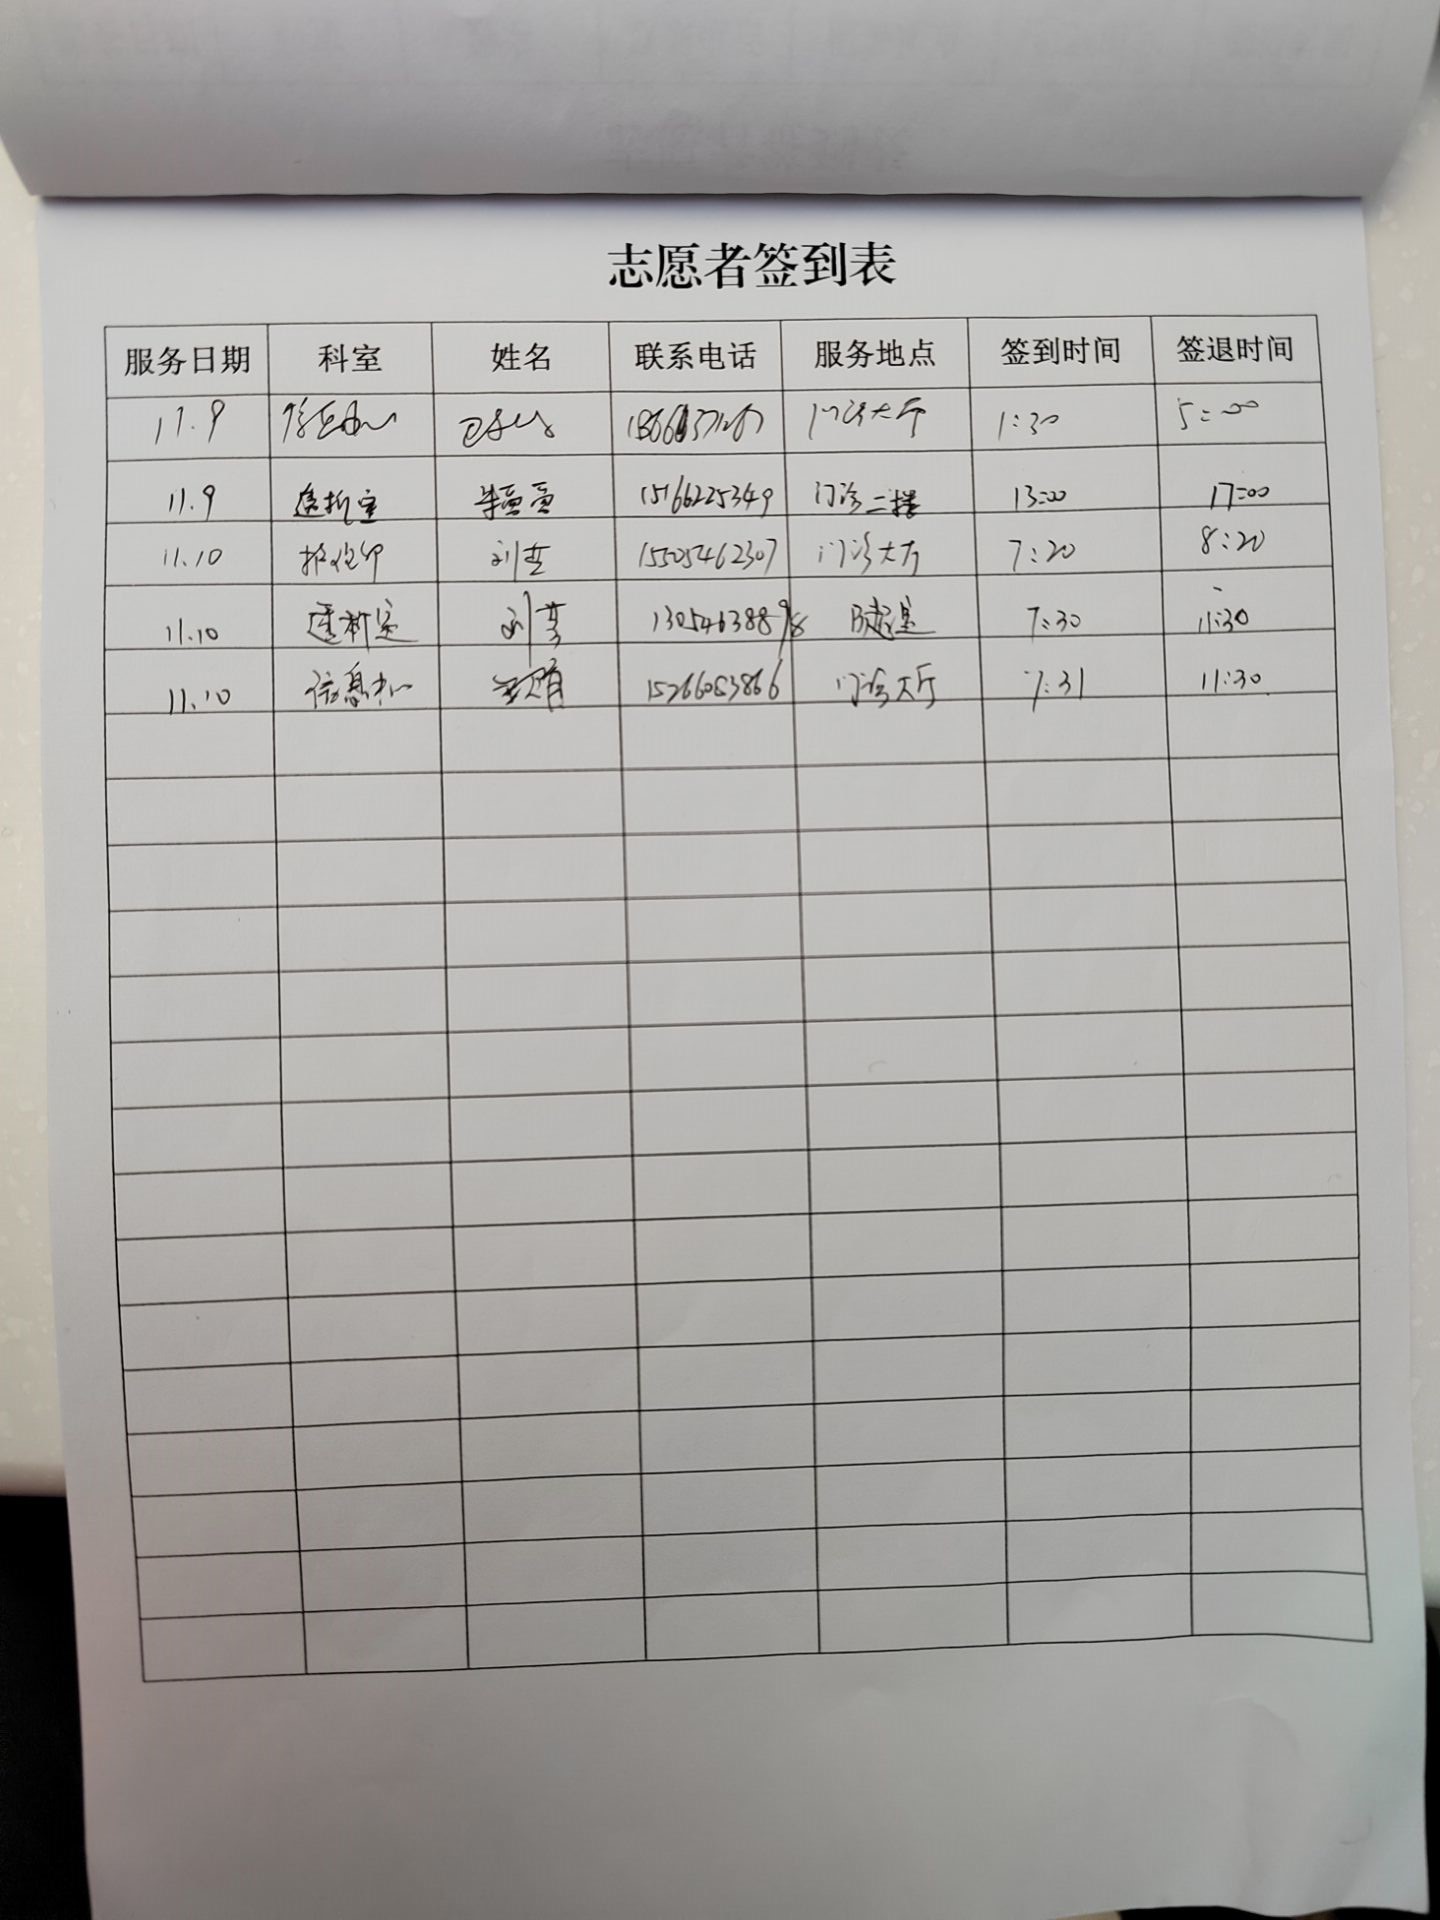 志愿者签到表
服务日期 科室 姓名 联系电话 服务地点 签到时间 签退时间
11.9 门诊大厅 1:30 5:00
11.9 透析室 15166225349 门诊二楼 13:00 17:00
11.10 刘 15505462307 门诊大厅 7:20 8:20
11.10 透析室 刘 13054638898 B超室 7:30 11:30
11.10 信息科 15266053866 门诊大厅 7:31 11:30